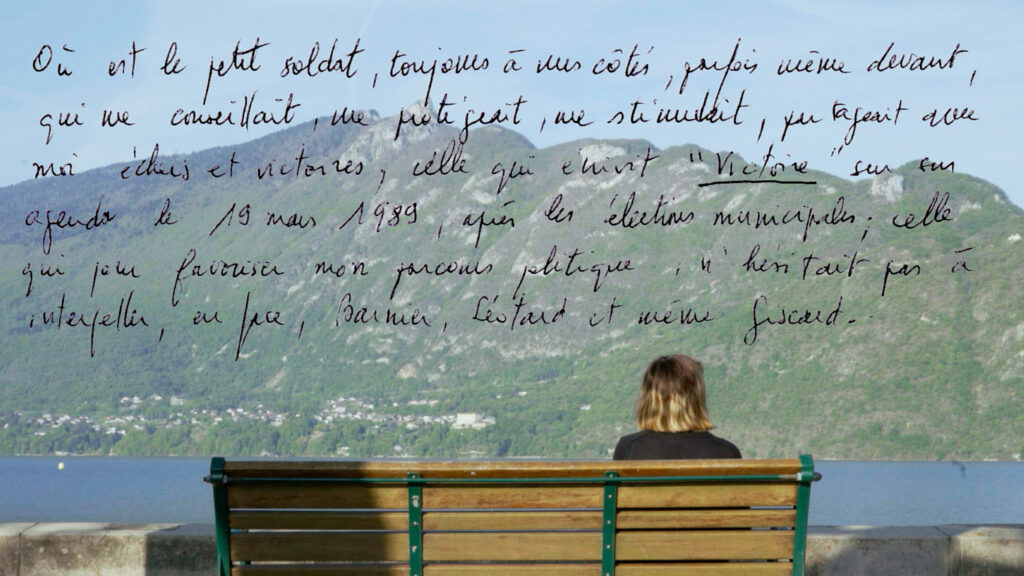 Où est le petit soldat, toujours à mes côtés, parfois même devant,
qui me conseillait, me protégeait, me stimulait, partageait avec
moi échecs et victoires, celle qui écrivit "Victoire" sur son
agenda le 19 mars 1989, après les élections municipales; celle
qui pour favoriser mon parcours politique, n'hésitait pas à
interpeller, en face, Barnier, Léotard et même Giscard.